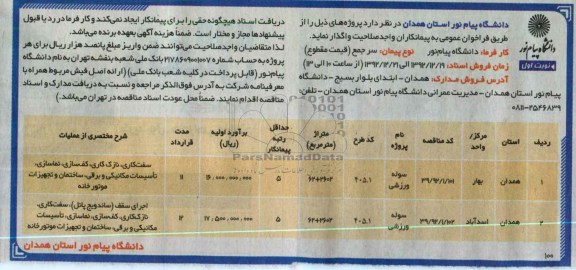 دانشگاه پیام نور
نوبت اول
دانشگاه پیام نور استان همدان در نظر دارد پروژه‌های ذیل را از
طریق فراخوان عمومی به پیمانکاران واجد صلاحیت واگذار نماید.
کارفرما: دانشگاه پیام‌نور نوع پیمان: سرجمع (قیمت مقطوع)
زمان فروش اسناد: از ۱۳۹۲/۱۲/۱۹ الی ۱۳۹۲/۱۲/۲۱ (از ساعت ۱۰ الی ۱۳)
آدرس فروش مدارک: همدان - ابتدای بلوار بسیج - دانشگاه
پیام نور همدان - مدیریت عمرانی دانشگاه پیام نور استان همدان - تلفن:
۰۸۱۱-۲۵۴۶۸۳۹
دریافت اسناد هیچگونه حقی را برای پیمانکار ایجاد نمی‌کند و کارفرما در رد یا قبول
پیشنهادها مجاز و مختار است. ضمنا هزینه آگهی بعهده برنده می‌باشد.
لذا متقاضیان واجد صلاحیت می‌توانند ضمن واریز مبلغ پانصد هزار ریال برای هر
پروژه به حساب شماره بانک ملی شعبه بنفشه تهران به نام دانشگاه
پیام‌نور (قابل پرداخت در کلیه شعب بانک ملی) (ارائه اصل فیش مربوط همراه با
معرفینامه شرکت به آدرس فوق‌الذکر مراجعه و نسبت به دریافت مدارک و اسناد
مناقصه اقدام نمایند. ضمنا محل عودت اسناد مناقصه در تهران می‌باشد.)
ردیف استان مرکز/واحد کد مناقصه نام پروژه کد طرح متراژ (مترمربع) حداقل رتبه پیمانکار برآورد اولیه (ریال) مدت قرارداد شرح مختصری از عملیات
۱ همدان بهار ۳۹/۹۲/۱/۱۰۱ سوله ورزشی ۴۰۵۰۱ ۶۲+۲۶۰۲ ۵ ۱۶،۰۰۰،۰۰۰،۰۰۰ ۱۱ سفت‌کاری، نازک‌کاری، کف‌سازی، نماسازی، تأسیسات مکانیکی و برقی، ساختمان و تجهیزات موتورخانه
۲ همدان اسدآباد ۳۹/۹۲/۱/۱۰۲ سوله ورزشی ۴۰۵۰۱ ۶۲+۲۶۰۲ ۵ ۱۷،۵۰۰،۰۰۰،۰۰۰ ۱۲ اجرای سقف (ساندویچ پانل)، سفت‌کاری، نازک‌کاری، کف‌سازی، نماسازی، تأسیسات مکانیکی و برقی، ساختمان و تجهیزات موتورخانه
۱۰۰
دانشگاه پیام نور استان همدان
ParsNamadData